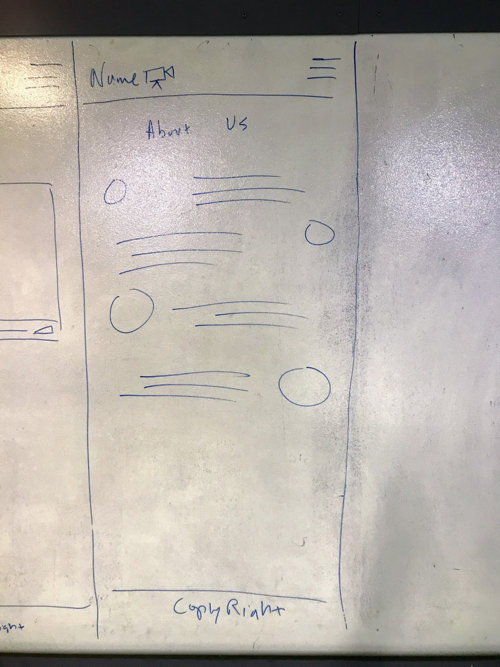 Name
About Us
CopyRight
ight